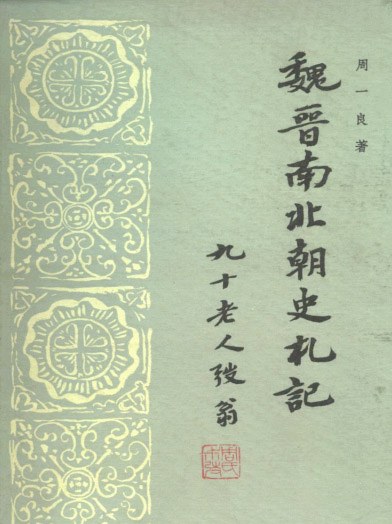 周一良著
魏晋南北朝史札記
九十老人弢翁